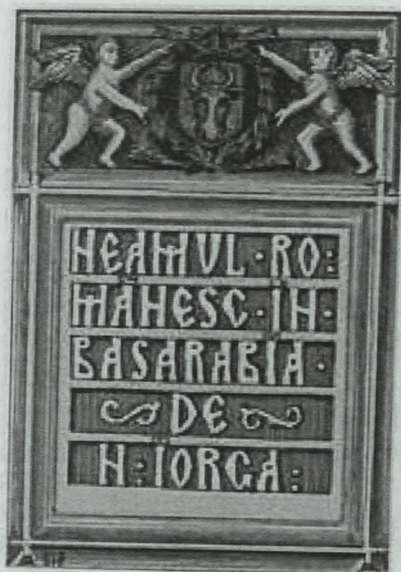 NEAMUL · RO:
MANESC · ÎN ·
BASARABIA ·
DE
N : IORGA :